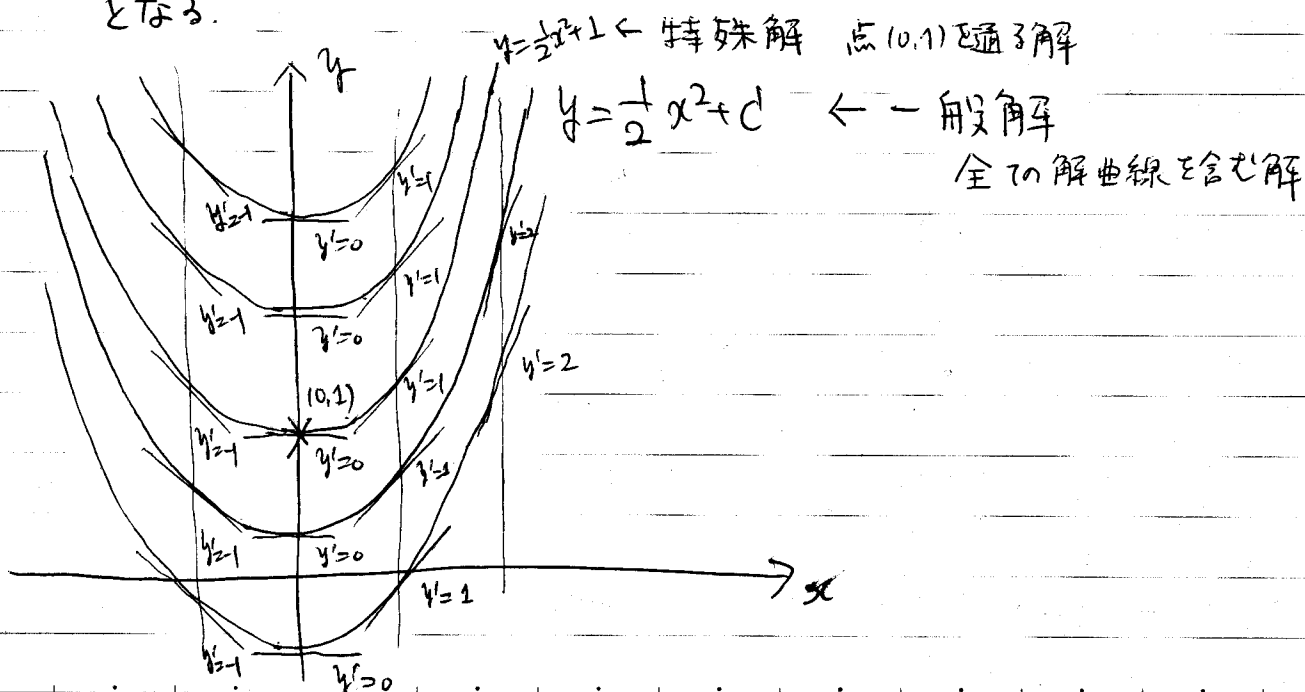 となる.
y=1/2x²+1 ← 特殊解 点(0,1)を通る解
y=1/2 x²+C ← 一般解
全ての解曲線を含む解
y
y'=1
y'=-1
y'=0
y'=2
y'=1
y'=-1
y'=0
y'=2
(0,1)
y'=1
y'=-1
y'=0
y'=1
y'=-1
y'=0
x
y'=1
y'=-1
y'=0